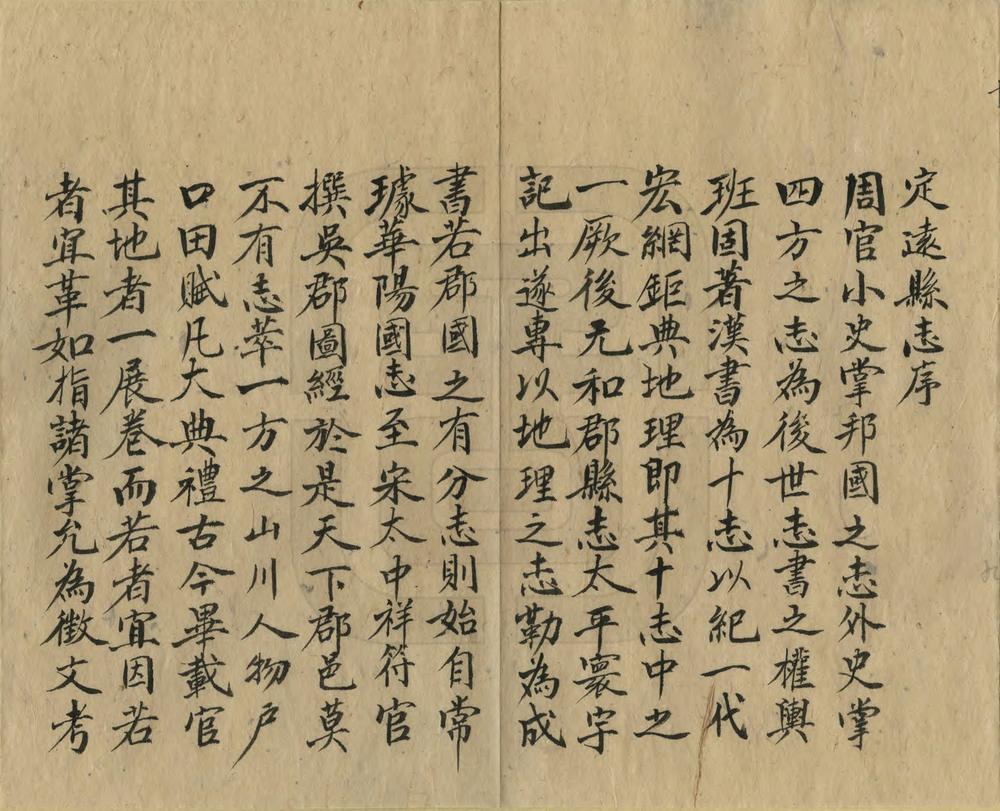 定遠縣志序
周官小史掌邦國之志外史掌
四方之志為後世志書之權輿
班固著漢書為十志以紀一代
宏綱鉅典地理即其十志中之
一厥後元和郡縣志太平寰宇
記出遂專以地理之志勒為成
書若郡國之有分志則始自常
璩華陽國志至宋太中祥符官
撰吳郡圖經於是天下郡邑莫
不有志萃一方之山川人物户
口田賦凡大典禮古今畢載官
其地者一展卷而若者宜因若
者宜革如指諸掌允為徵文考